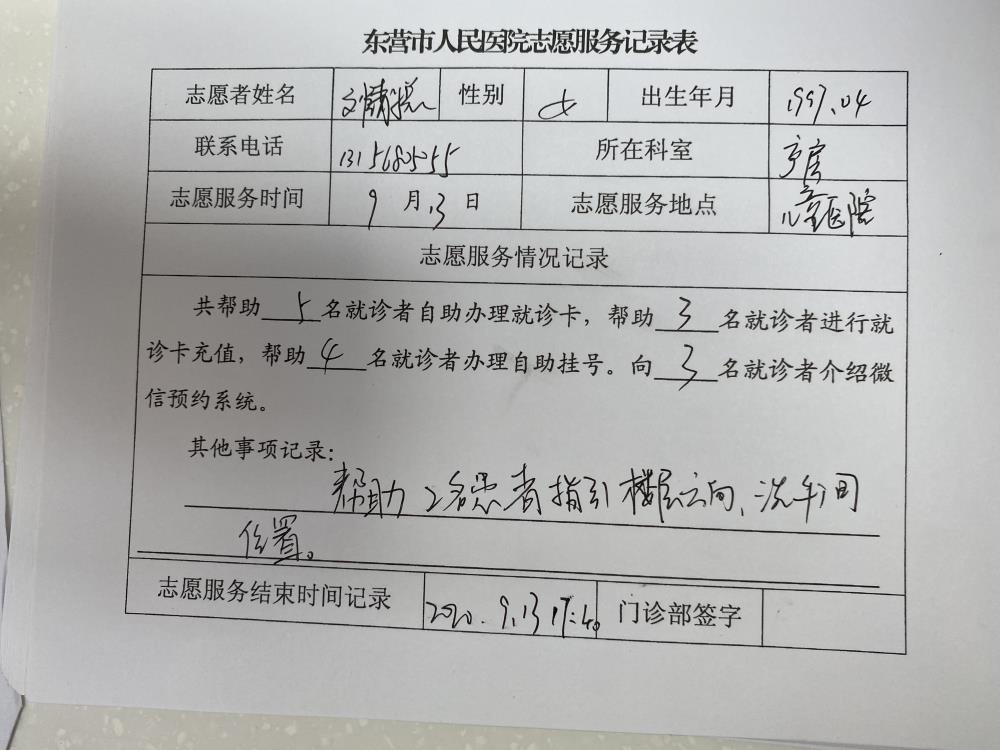 东营市人民医院志愿服务记录表
志愿者姓名 性别 女 出生年月 1997.04
联系电话 13156805255 所在科室 产房
志愿服务时间 9月13日 志愿服务地点 儿童医院
志愿服务情况记录
共帮助5名就诊者自助办理就诊卡，帮助3名就诊者进行就
诊卡充值，帮助4名就诊者办理自助挂号。向3名就诊者介绍微
信预约系统。
其他事项记录：
帮助2名患者指引楼层方向、洗手间
位置。
志愿服务结束时间记录 2020.9.13 17:40 门诊部签字